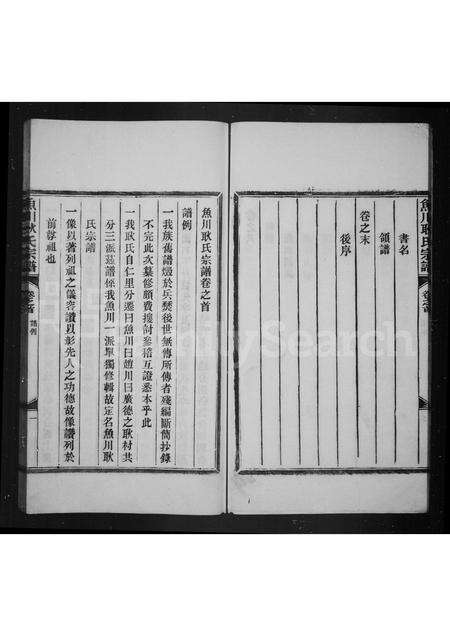 魚川耿氏宗譜
書名
領譜
卷之末
後序
魚川耿氏宗譜卷之首
譜例
一我族舊譜燬於兵燹後世無傳所傳者殘編斷簡抄錄
不完此次纂修頗費搜討參稽互證悉本乎此
一我耿氏自仁里分遷曰魚川曰遵川曰廣德之耿村共
分三派茲譜係我魚川一派單獨修輯故定名魚川耿
氏宗譜
一像以著列祖之儀容讚以彰先人之功德故像讚列於
前尊祖也
魚川耿氏宗譜
卷首
譜例
FamilySearch